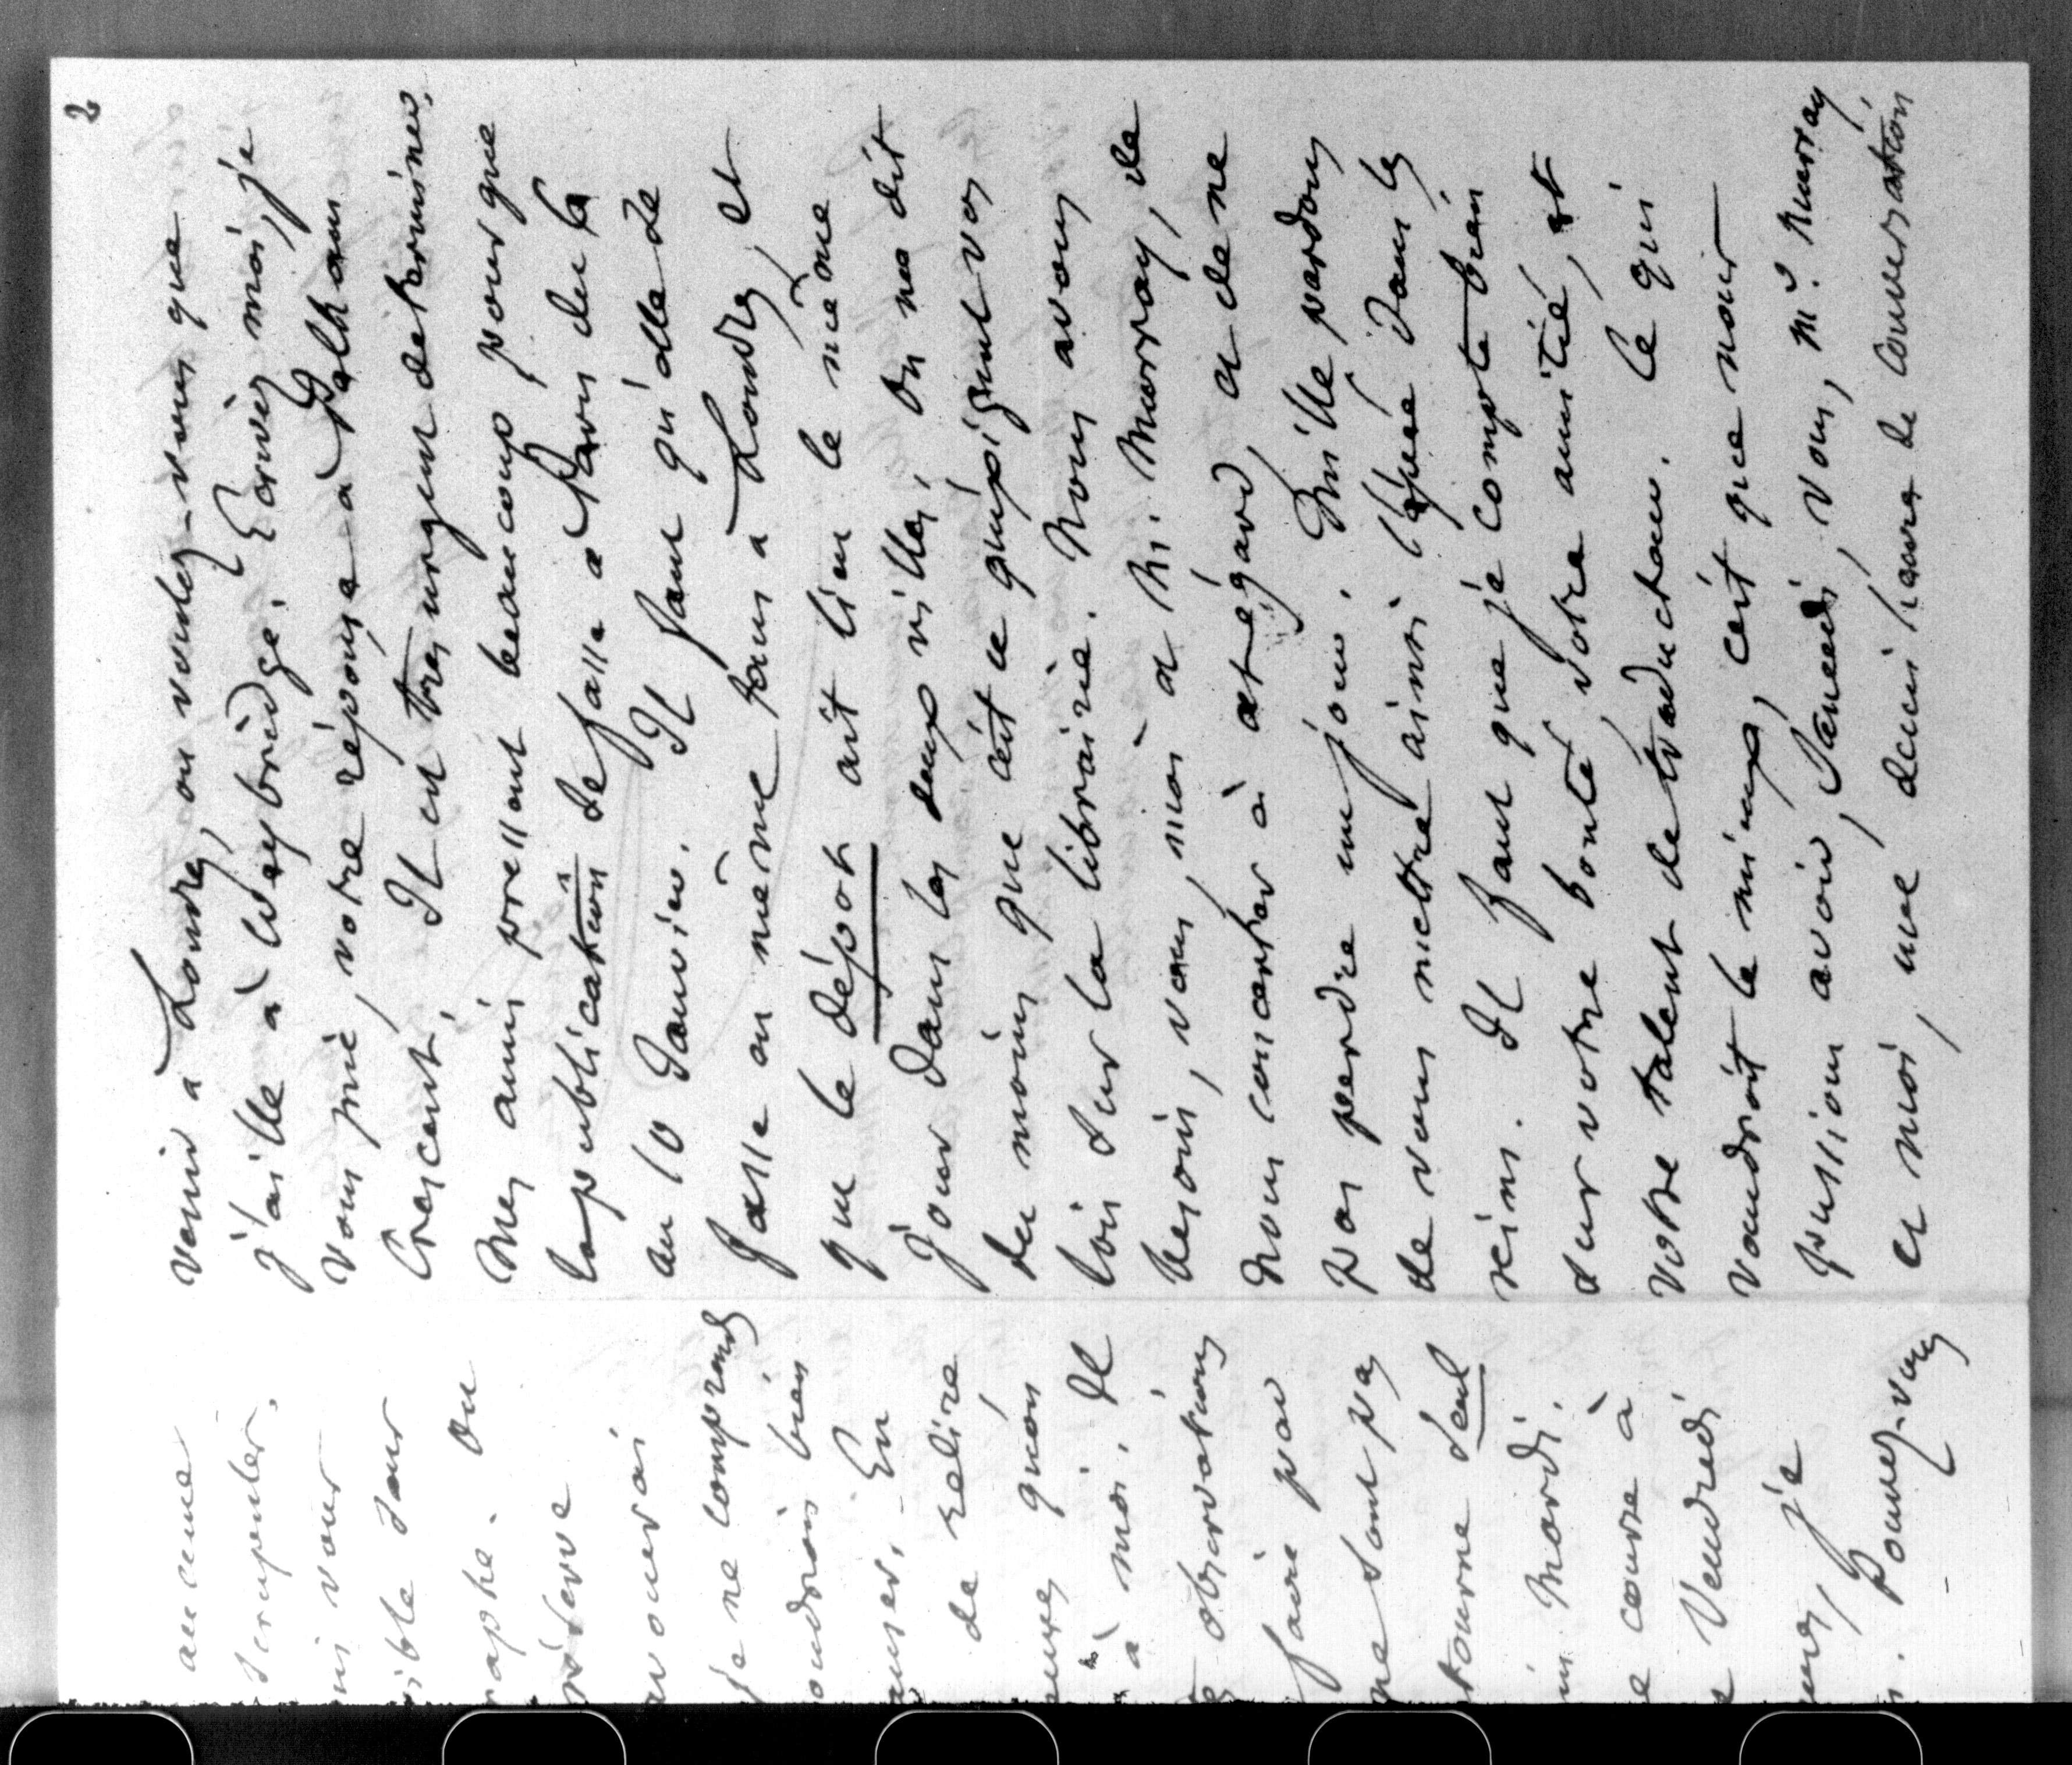 aucune
scrupuler.
ni vous
sible sur
raphe. On
réserve
avouerai
Je ne comprends
oudrais bien
auser. En
de relire
eures qu'on
à moi. Il
observations
faire par
ne sont pas
tourne seul
in Mardi.
e course à
Vendredi
je
Pouvez-vous
2
venir à Londres, ou voulez-vous que
j'aille à Weybridge. Ecrivez moi, je
vous prie, votre réponse à Pelham
Crescent. Il est très urgent de terminer.
Mes amis pressent beaucoup pour que
la publication se fasse à Paris du 6
au 10 Janvier. Il faut qu'elle se
fasse en même tems à Londres, et
que le dépot ait lieu le même
jour dans les deux villes. On me dit
du moins que c'est ce qu'exigent vos
lois sur la librairie. Nous avons
besoin, vous, moi et M. Murray, de
nous concerter à cet égard, et de ne
pas perdre un jour. Mille pardons
de vous mettre ainsi l'épée dans les
reins. Il faut que je compte bien
sur votre bonté, votre amitié, et
votre talent de traducteur. Ce qui
vaudroit le mieux, c'est que nous
pussions avoir, Samedi, vous, Mr. Murray
et moi, une demi heure de conversation